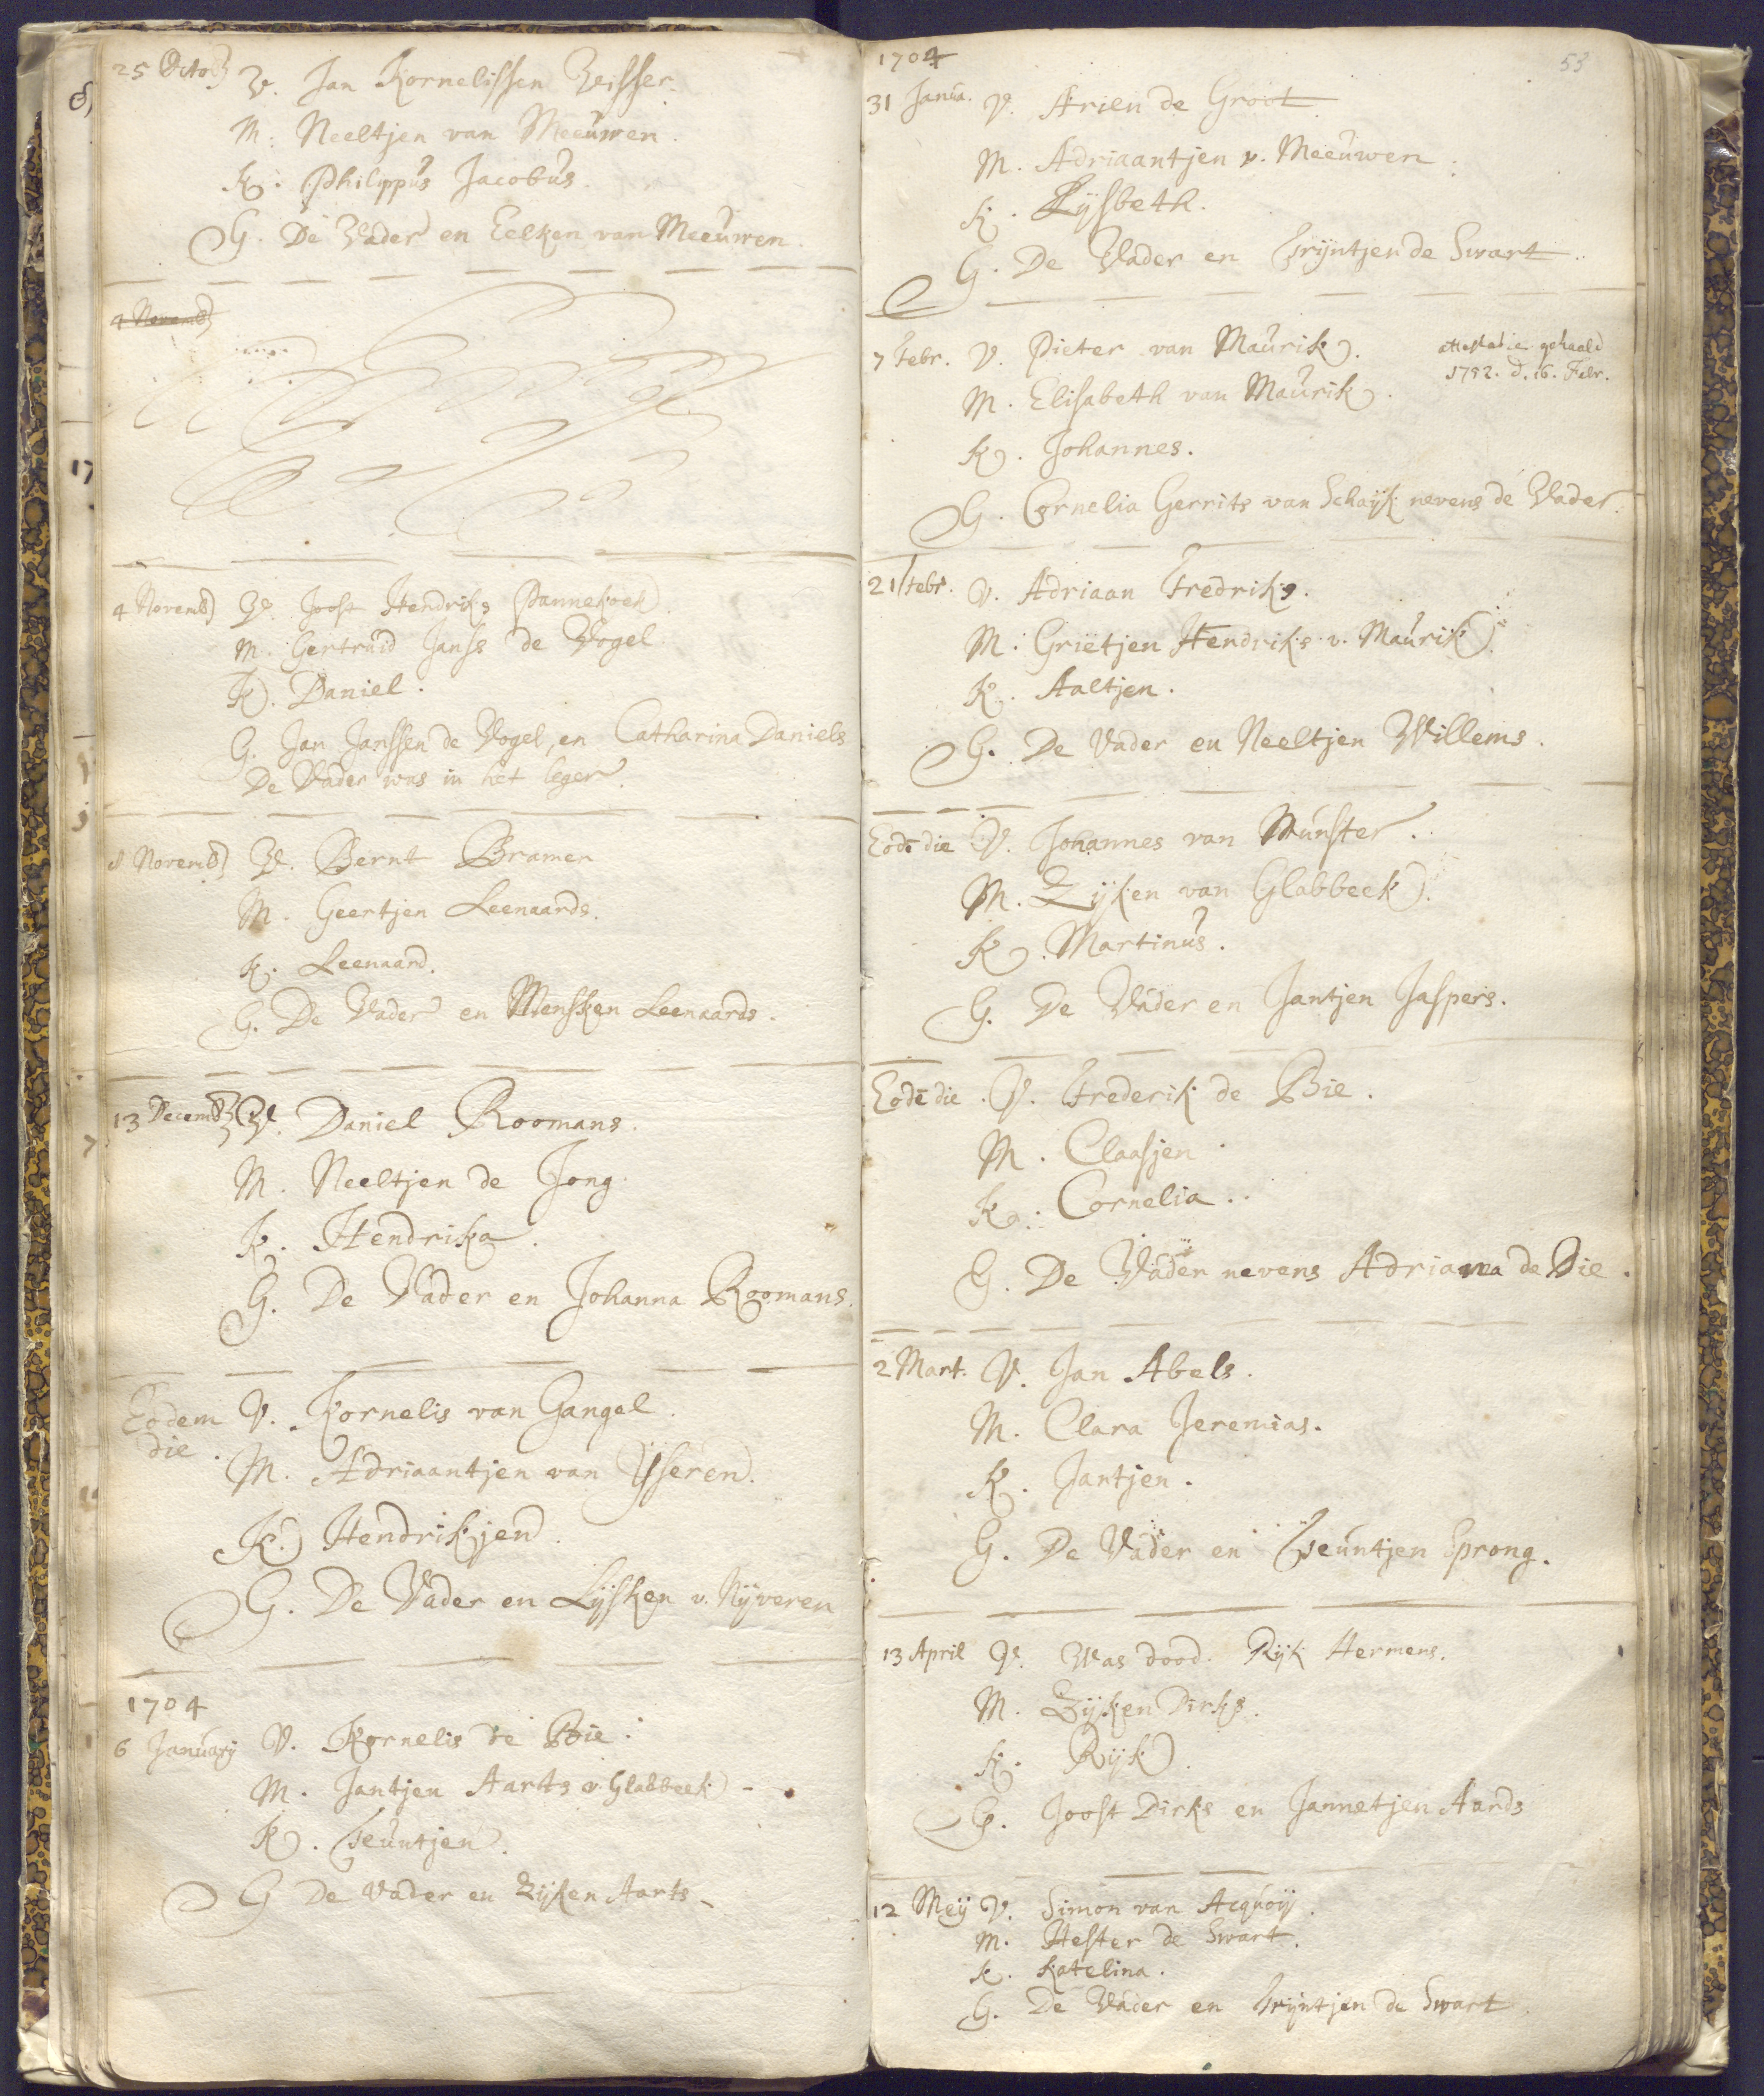 25 Octob V. Jan Kornelissen Visser.
M. Neeltjen van Meeuwen.
K. Philippus Jacobus.
G. De Vader en Eelken van Meeuwen.
4 Novemb
4 Novemb V. Joost Hendriks Pannekoek.
M. Gertruid Janss de Vogel.
K. Daniel.
G. Jan Janssen de Vogel, en Catharina Daniels
De Vader was in het leger.
8 Novemb V. Bernt Bramer
M. Geertjen Leenaards.
K. Leenaard.
G. De Vader en Mensken Leenaards.
13 Decemb V. Daniel Roomans.
M. Neeltjen de Jong.
K. Hendrika.
G. De Vader en Johanna Roomans.
Eodem V. Kornelis van Gangel.
die.
M. Adriaantjen van Ijseren.
K. Hendrikjen.
G. De Vader en Lijsken v. Nijveren
1704
6 January V. Kornelis de Bie.
M. Jantjen Aarts v. Glabbeek -
K. Teuntjen.
G De Vader en Zijken Aarts -
1704
53
31 Janua. V. Arien de Groot
M. Adriaantjen v. Meeuwen.
K. Lijsbeth.
G. De Vader en Trijntjen de Swart.
7 Febr. V. Pieter van Maurik.
attestatie gehaald
1752. d. 16. Febr.
M. Elisabeth van Maurik.
K. Johannes.
G. Cornelia Gerrits van Schaijk nevens de Vader.
21 Febr. V. Adriaan Fredriks.
M. Grietjen Hendriks v. Maurik.
K. Aaltjen.
G. De Vader en Neeltjen Willems.
Eodē die V. Johannes van Munster.
M. Zijken van Glabbeek.
K. Martinus.
G. De Vader en Jantjen Jaspers.
Eodē die. V. Frederik de Bie.
M. Claasjen.
K. Cornelia.
G. De Vader nevens Adriana de Bie.
2 Mart. V. Jan Abels.
M. Clara Jeremias.
K. Jantjen.
G. De Vader en Teuntjen Sprong.
13 April V. Was dood. Rijk Hermens.
M. Zijken Dirks.
K. Rijk.
G. Joost Dirks en Jannetjen Aards
12 Meij V. Simon van Acquoij.
M. Hester de Swart.
K. Katelina.
G. De Vader en Trijntjen de Swart.